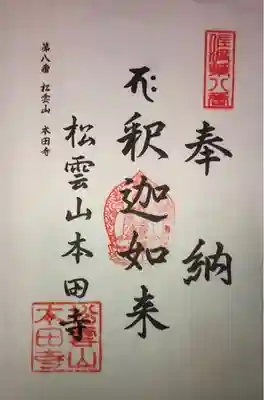 奉納
釈迦如来
松雲山本田寺
第八番 松雲山 本田寺
松雲山
本田寺